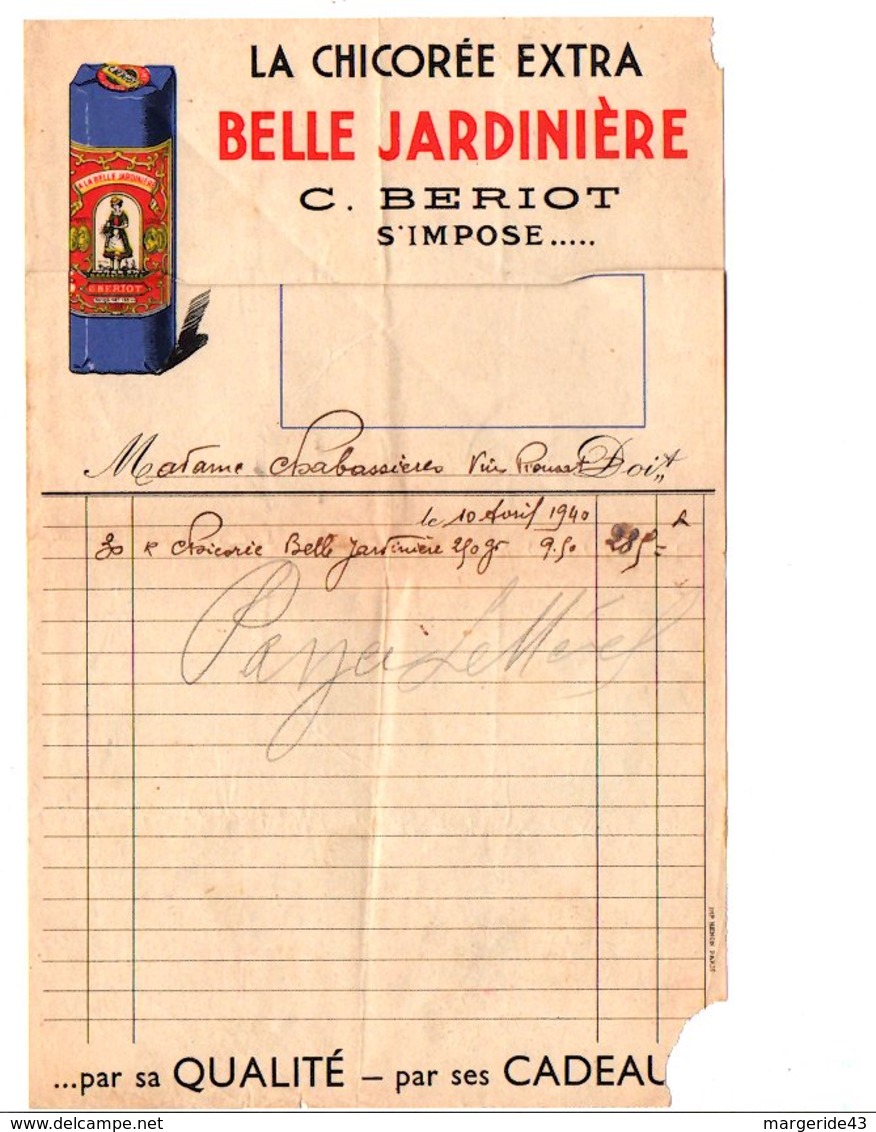 LA CHICORÉE EXTRA
BELLE JARDINIÈRE
C. BERIOT
S'IMPOSE.....
A LA BELLE JARDINIÈRE
C. BERIOT
Madame Chabassières Doit
le 10 Avril 1940
30 K Chicorie Belle Jardinière 250gr 9.50 285 -
Payer
...par sa QUALITÉ – par ses CADEAU
margeride43